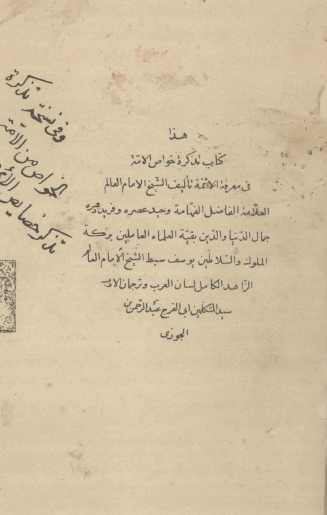 هذا
كتاب تذكرة خواص الامة
فى معرفة الائمة تأليف الشيخ الامام العالم
العلامة الفاضل الفهامة وحيد عصره وفريد دهره
جمال الدنيا والدين بقية العلماء العاملين بركة
الملوك والسلاطين يوسف سبط الشيخ الامام العالم
الزاهد الكامل لسان العرب وترجمان الادب
سيد المتكلمين ابى الفرج عبد الرحمن بن
الجوزى
وفى نسخة تذكرة
الخواص من الامة
تذكر خصايص الائمة